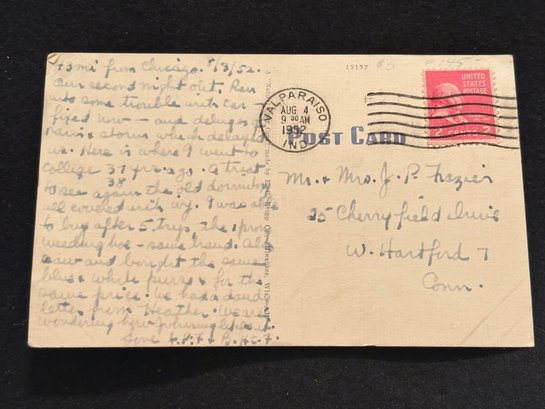 43 mi from Chicago. 8/3/52.
Our second night out. Ran
into some trouble with car -
fixed now - and deluges of
Rain & storm which delayed
us. Here is where I went to
College 37 yrs. ago. A treat
38
to see again the old dormitory
all covered with ivy. I was able
to buy after 5 trys, the
weeding hoe - same brand. Also
saw and bought the same
blue & white for the
same price. We had a dandy
letter from Heather. We are
wondering how Johnny
Love
15137
VALPARAISO
AUG 4
9 30 AM
1952
IND.
UNITED
STATES
POSTAGE
POST CARD
Mr. & Mrs. J. P. Frazier
25 Cherryfield Drive
W. Hartford 7
Conn.